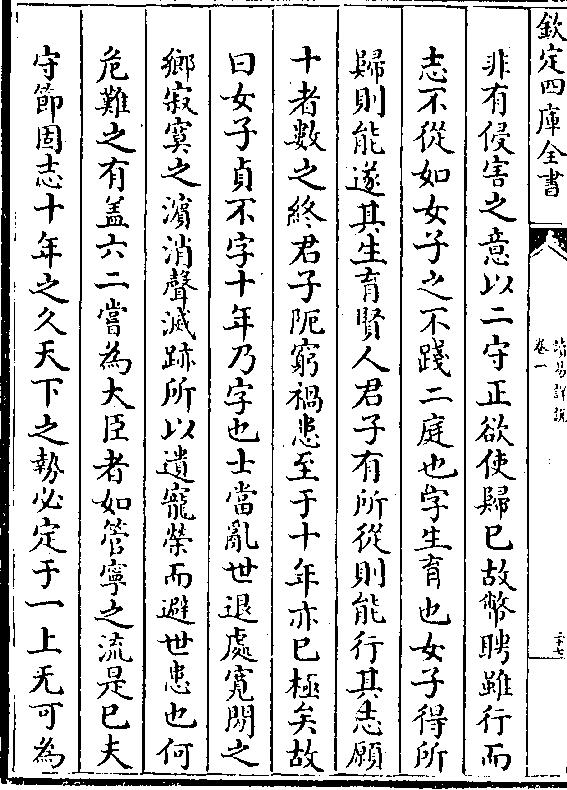 欽定四庫全書
讀易詳說
卷一
二十七
非有侵害之意以二守正欲使歸已故幣聘雖行而
志不從如女子之不踐二庭也字生育也女子得所
歸則能遂其生育賢人君子有所從則能行其志願
十者數之終君子阨窮禍患至于十年亦已極矣故
曰女子貞不字十年乃字也士當亂世退處寛閒之
鄉寂寞之濵消聲滅跡所以遺寵榮而避世患也何
危難之有盖六二嘗為大臣者如管寧之流是已夫
守節固志十年之久天下之勢必定于一上无可為